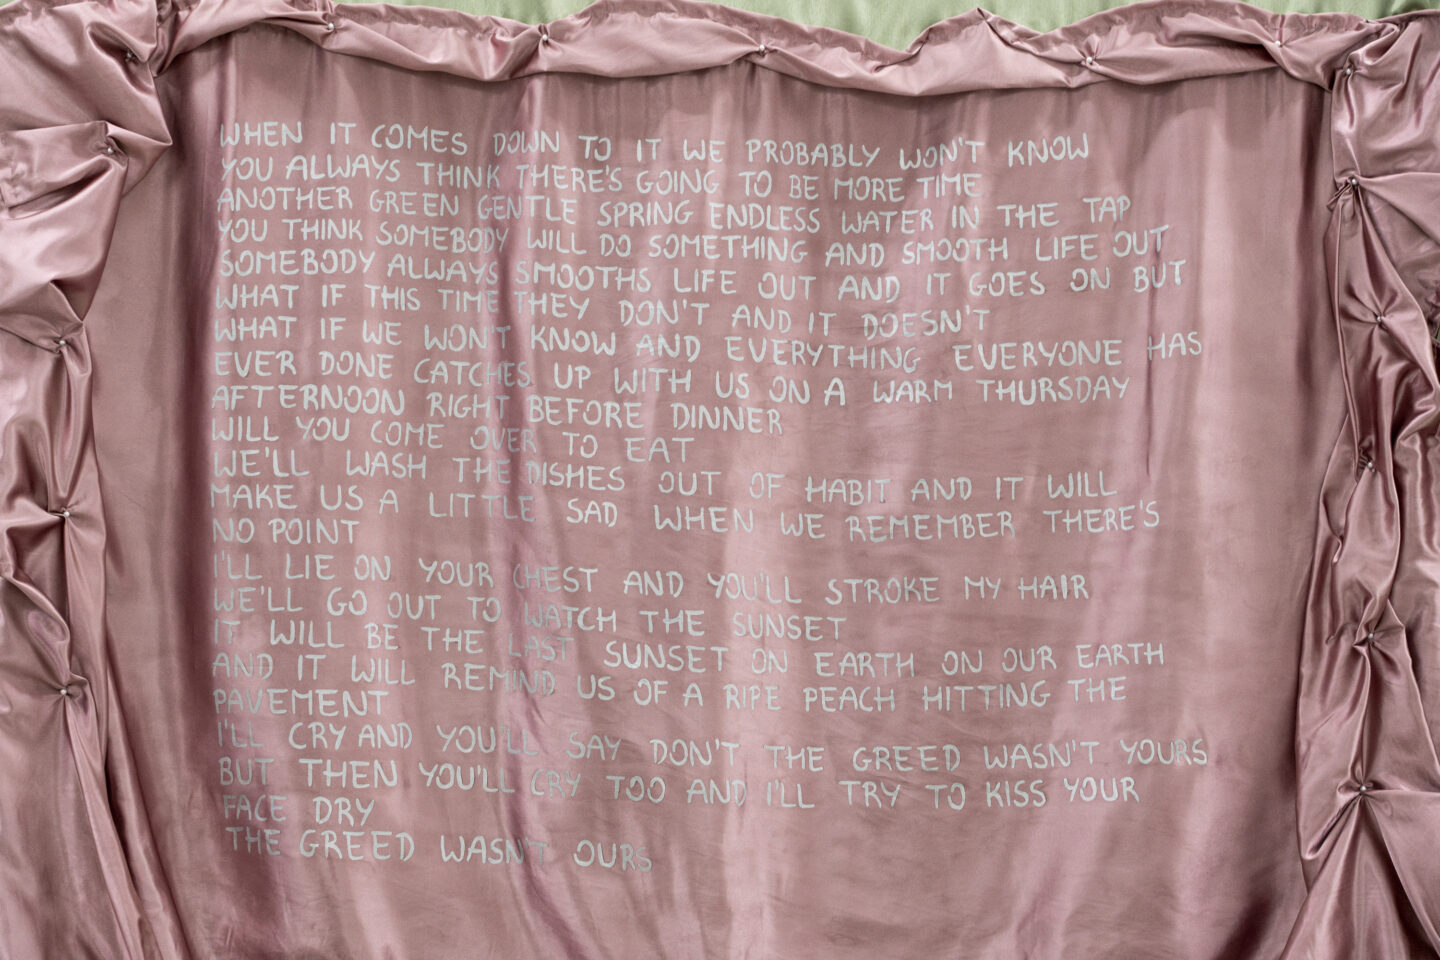 WHEN IT COMES DOWN TO IT WE PROBABLY WON'T KNOW
YOU ALWAYS THINK THERE'S GOING TO BE MORE TIME
ANOTHER GREEN GENTLE SPRING ENDLESS WATER IN THE TAP
YOU THINK SOMEBODY WILL DO SOMETHING AND SMOOTH LIFE OUT
SOMEBODY ALWAYS SMOOTHS LIFE OUT AND IT GOES ON BUT
WHAT IF THIS TIME THEY DON'T AND IT DOESN'T
WHAT IF WE WON'T KNOW AND EVERYTHING EVERYONE HAS
EVER DONE CATCHES UP WITH US ON A WARM THURSDAY
AFTERNOON RIGHT BEFORE DINNER
WILL YOU COME OVER TO EAT
WE'LL WASH THE DISHES OUT OF HABIT AND IT WILL
MAKE US A LITTLE SAD WHEN WE REMEMBER THERE'S
NO POINT
I'LL LIE ON YOUR CHEST AND YOU'LL STROKE MY HAIR
WE'LL GO OUT TO WATCH THE SUNSET
IT WILL BE THE LAST SUNSET ON EARTH ON OUR EARTH
AND IT WILL REMIND US OF A RIPE PEACH HITTING THE
PAVEMENT
I'LL CRY AND YOU'LL SAY DON'T THE GREED WASN'T YOURS
BUT THEN YOU'LL CRY TOO AND I'LL TRY TO KISS YOUR
FACE DRY
THE GREED WASN'T OURS